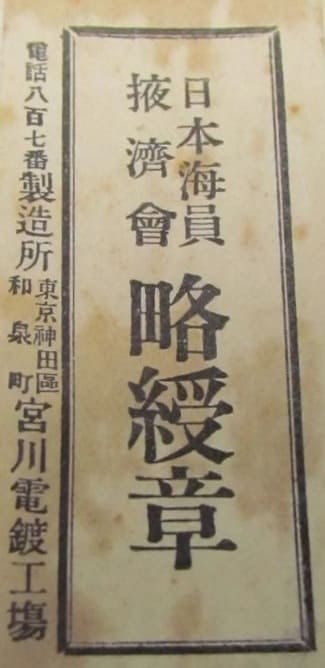 日本海員
掖濟會
略綬章
電話八百七番製造所
東京神田區
和泉町
宮川電鍍工場